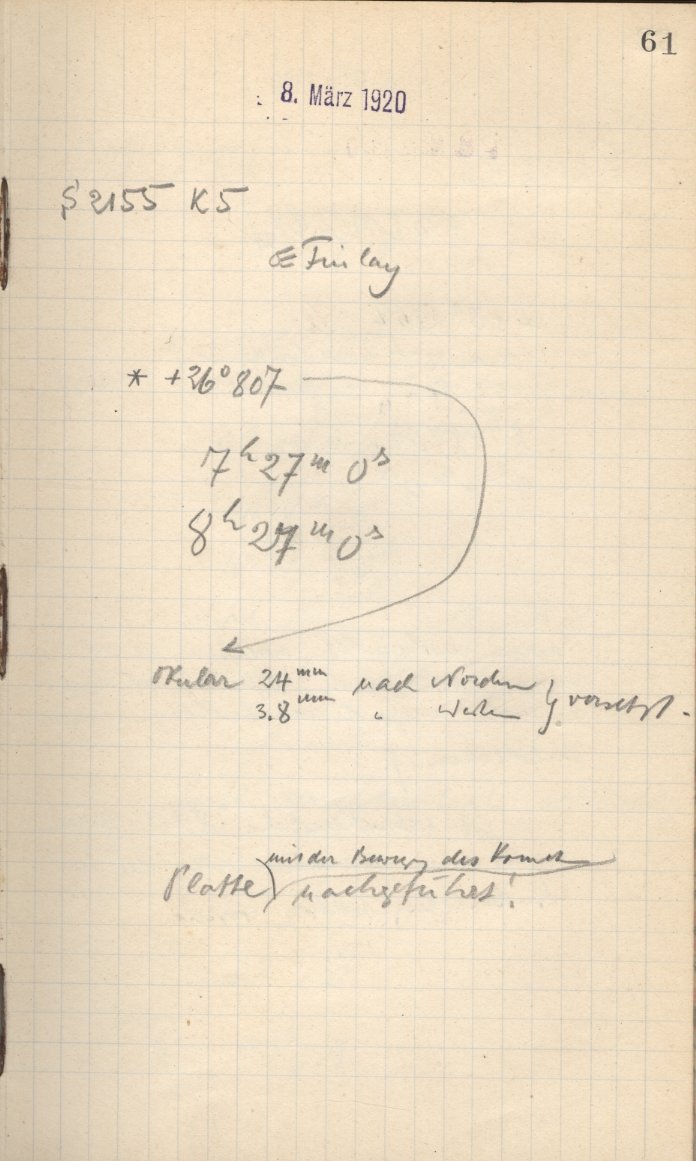 61
8. März 1920
S 2155 K5
Finlay
* +26° 807
7h 27m 0s
8h 27m 0s
Okular 24mm nach Norden
3.8mm " Westen } versetzt.
mit der Bewegg des Komet
Platte nachgeführt!